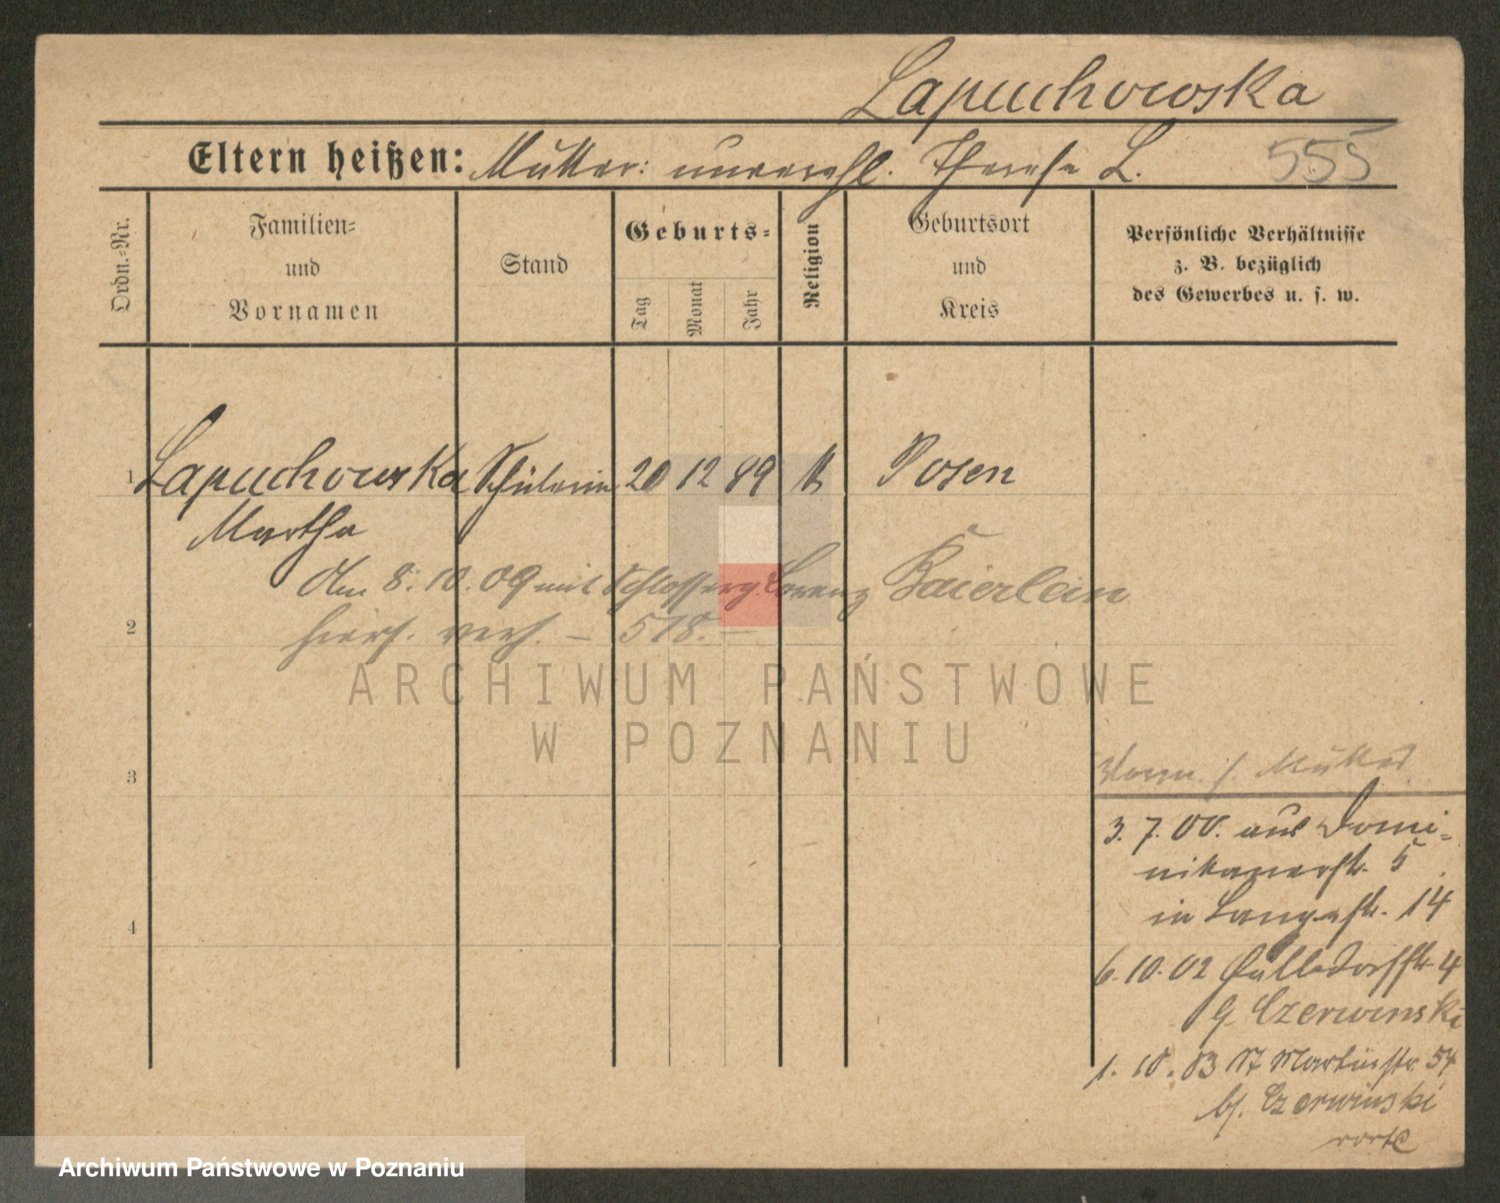 Lapuchowska
Eltern heißen: Mutter: unverehl. Therese L.
555
Ordn.-Nr.
Familien-
und
Vornamen
Stand
Geburts-
Tag
Monat
Jahr
Religion
Geburtsort
und
Kreis
Persönliche Verhältnisse
z. B. bezüglich
des Gewerbes u. s. w.
1 Lapuchowska Schülerin 20 12 89 k Posen
Martha
Am 8. 10. 09 mit Schlosserg. Lorenz Baierlein
hiers. verh. — 518. —
2
3
4
ARCHIWUM PAŃSTWOWE
W POZNANIU
Vorm. s. Mutter
3. 7. 00. aus Domi-
nikanerstr. 5
in Langestr. 14
6. 10. 02 Halldorfstr. 4
b/ Czerwinski
1. 10. 03 St Martinstr. 54
b/. Czerwinski
Archiwum Państwowe w Poznaniu